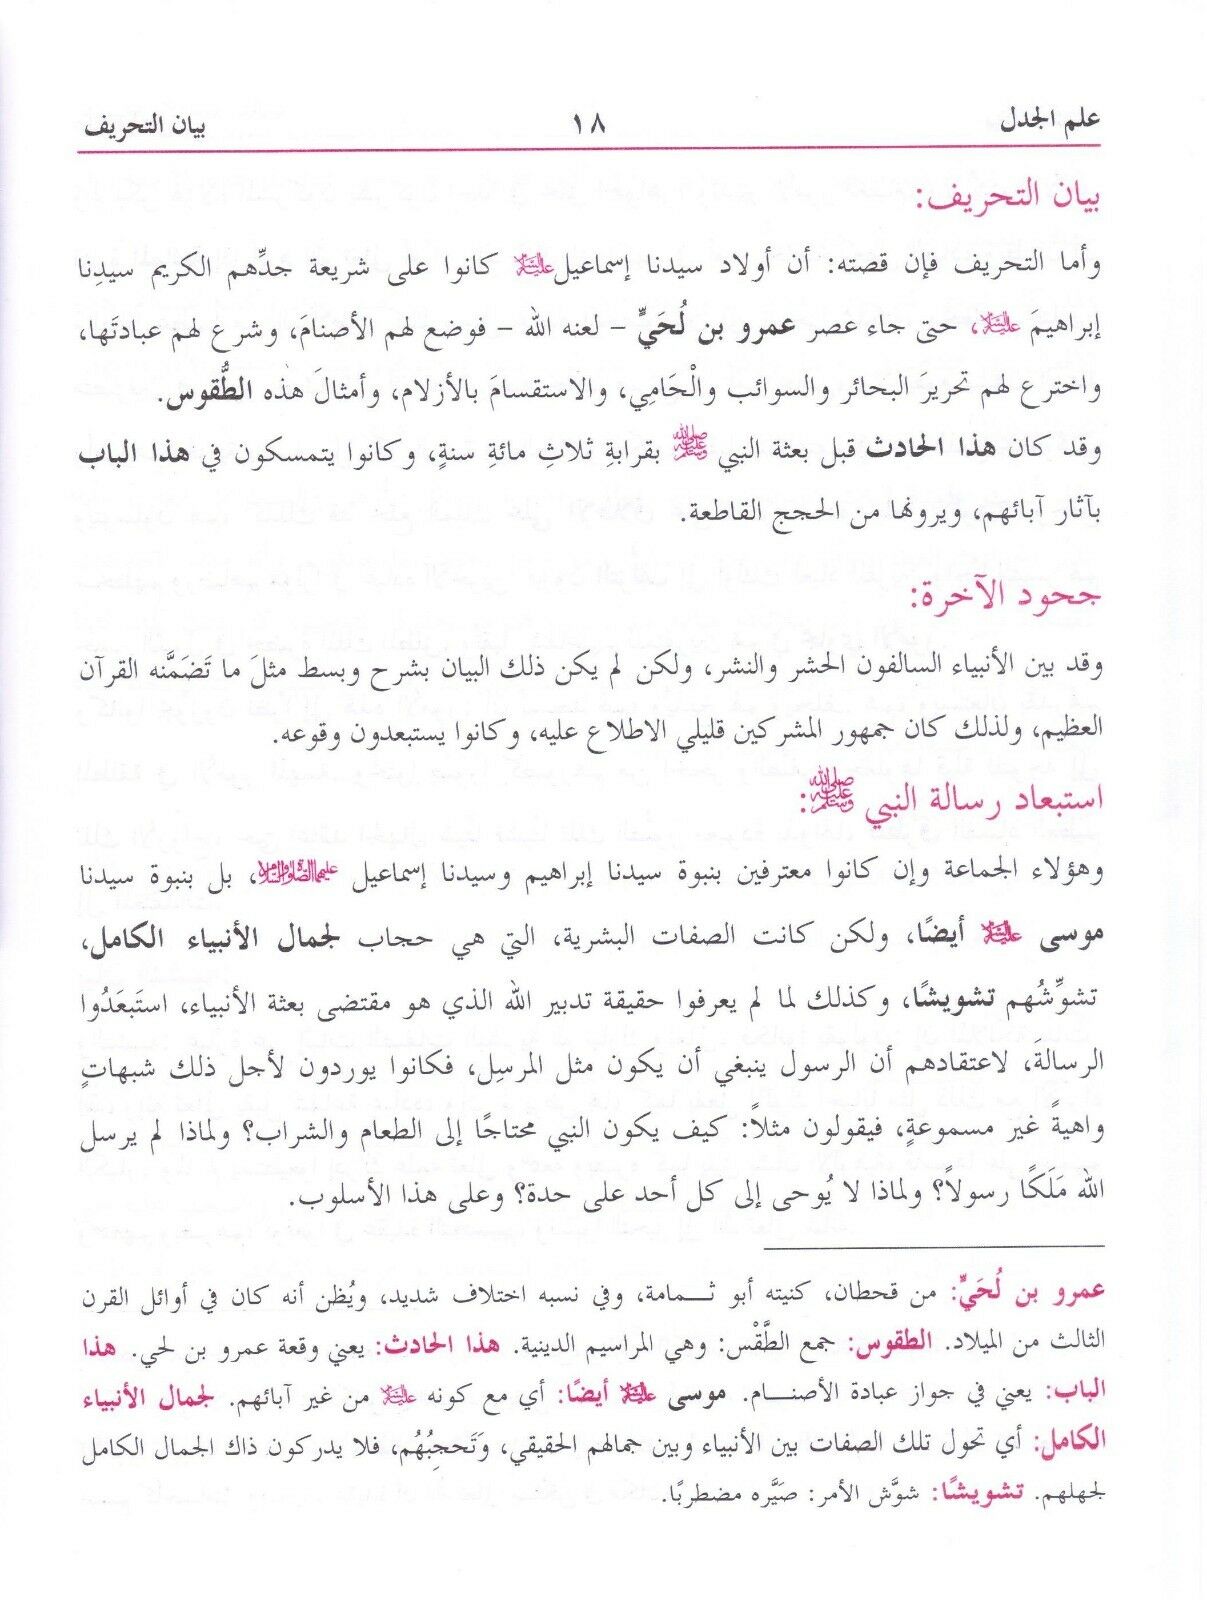 علم الجدل ١٨ بيان التحريف
بيان التحريف:
وأما التحريف فإن قصته: أن أولاد سيدنا إسماعيل عليه السلام كانوا على شريعة جدِّهم الكريم سيدِنا
إبراهيمَ عليه السلام، حتى جاء عصر عمرو بن لُحَيٍّ – لعنه الله – فوضع لهم الأصنامَ، وشرع لهم عبادتَها،
واخترع لهم تحريرَ البحائر والسوائب والْحَامِي، والاستقسامَ بالأزلام، وأمثالَ هذه الطُّقوس.
وقد كان هذا الحادث قبل بعثة النبي ﷺ بقرابةِ ثلاثِ مائةِ سنةٍ، وكانوا يتمسكون في هذا الباب
بآثار آبائهم، ويرونها من الحجج القاطعة.
جحود الآخرة:
وقد بين الأنبياء السالفون الحشر والنشر، ولكن لم يكن ذلك البيان بشرح وبسط مثلَ ما تَضَمَّنه القرآن
العظيم، ولذلك كان جمهور المشركين قليلي الاطلاع عليه، وكانوا يستبعدون وقوعه.
استبعاد رسالة النبي ﷺ:
وهؤلاء الجماعة وإن كانوا معترفين بنبوة سيدنا إبراهيم وسيدنا إسماعيل عليهما الصلاة والسلام، بل بنبوة سيدنا
موسى عليه السلام أيضًا، ولكن كانت الصفات البشرية، التي هي حجاب لجمال الأنبياء الكامل،
تشوِّشُهم تشويشًا، وكذلك لما لم يعرفوا حقيقة تدبير الله الذي هو مقتضى بعثة الأنبياء، استَبعَدُوا
الرسالةَ، لاعتقادهم أن الرسول ينبغي أن يكون مثل المرسِل، فكانوا يوردون لأجل ذلك شبهاتٍ
واهيةً غير مسموعةٍ، فيقولون مثلاً: كيف يكون النبي محتاجًا إلى الطعام والشراب؟ ولماذا لم يرسل
الله مَلَكًا رسولاً؟ ولماذا لا يُوحى إلى كل أحد على حدة؟ وعلى هذا الأسلوب.
عمرو بن لُحَيٍّ: من قحطان، كنيته أبو ثـــمامة، وفي نسبه اختلاف شديد، ويُظن أنه كان في أوائل القرن
الثالث من الميلاد. الطقوس: جمع الطَّقْس: وهي المراسيم الدينية. هذا الحادث: يعني وقعة عمرو بن لحي. هذا
الباب: يعني في جواز عبادة الأصنـــام. موسى عليه السلام أيضًا: أي مع كونه عليه السلام من غير آبائهم. لجمال الأنبياء
الكامل: أي تحول تلك الصفات بين الأنبياء وبين جمالهم الحقيقي، وَتَحجِبُهُم، فلا يدركون ذاك الجمال الكامل
لجهلهم. تشويشًا: شوَّش الأمر: صَيَّره مضطربًا.